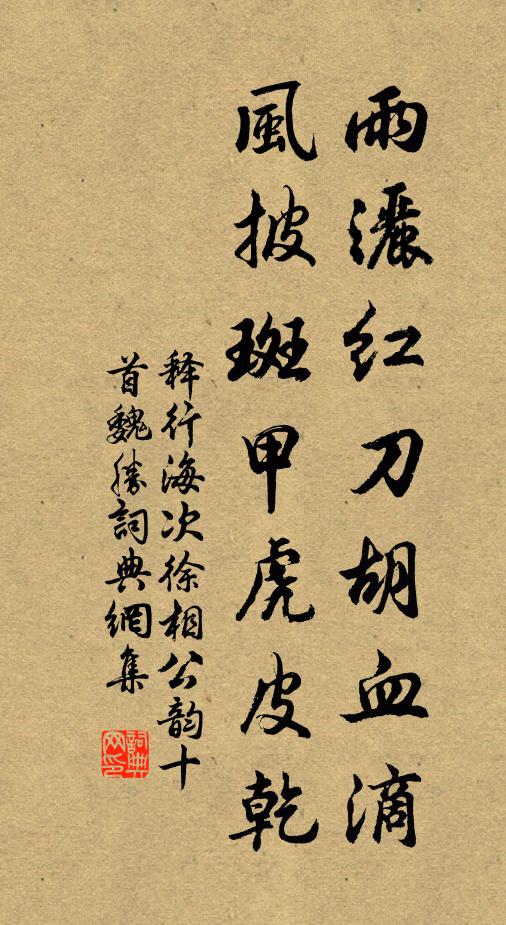 雨灑紅刀胡血滴
風披斑甲虎皮乾
释行海次徐相公韵十
首魏勝詞典網集
詞典
网印